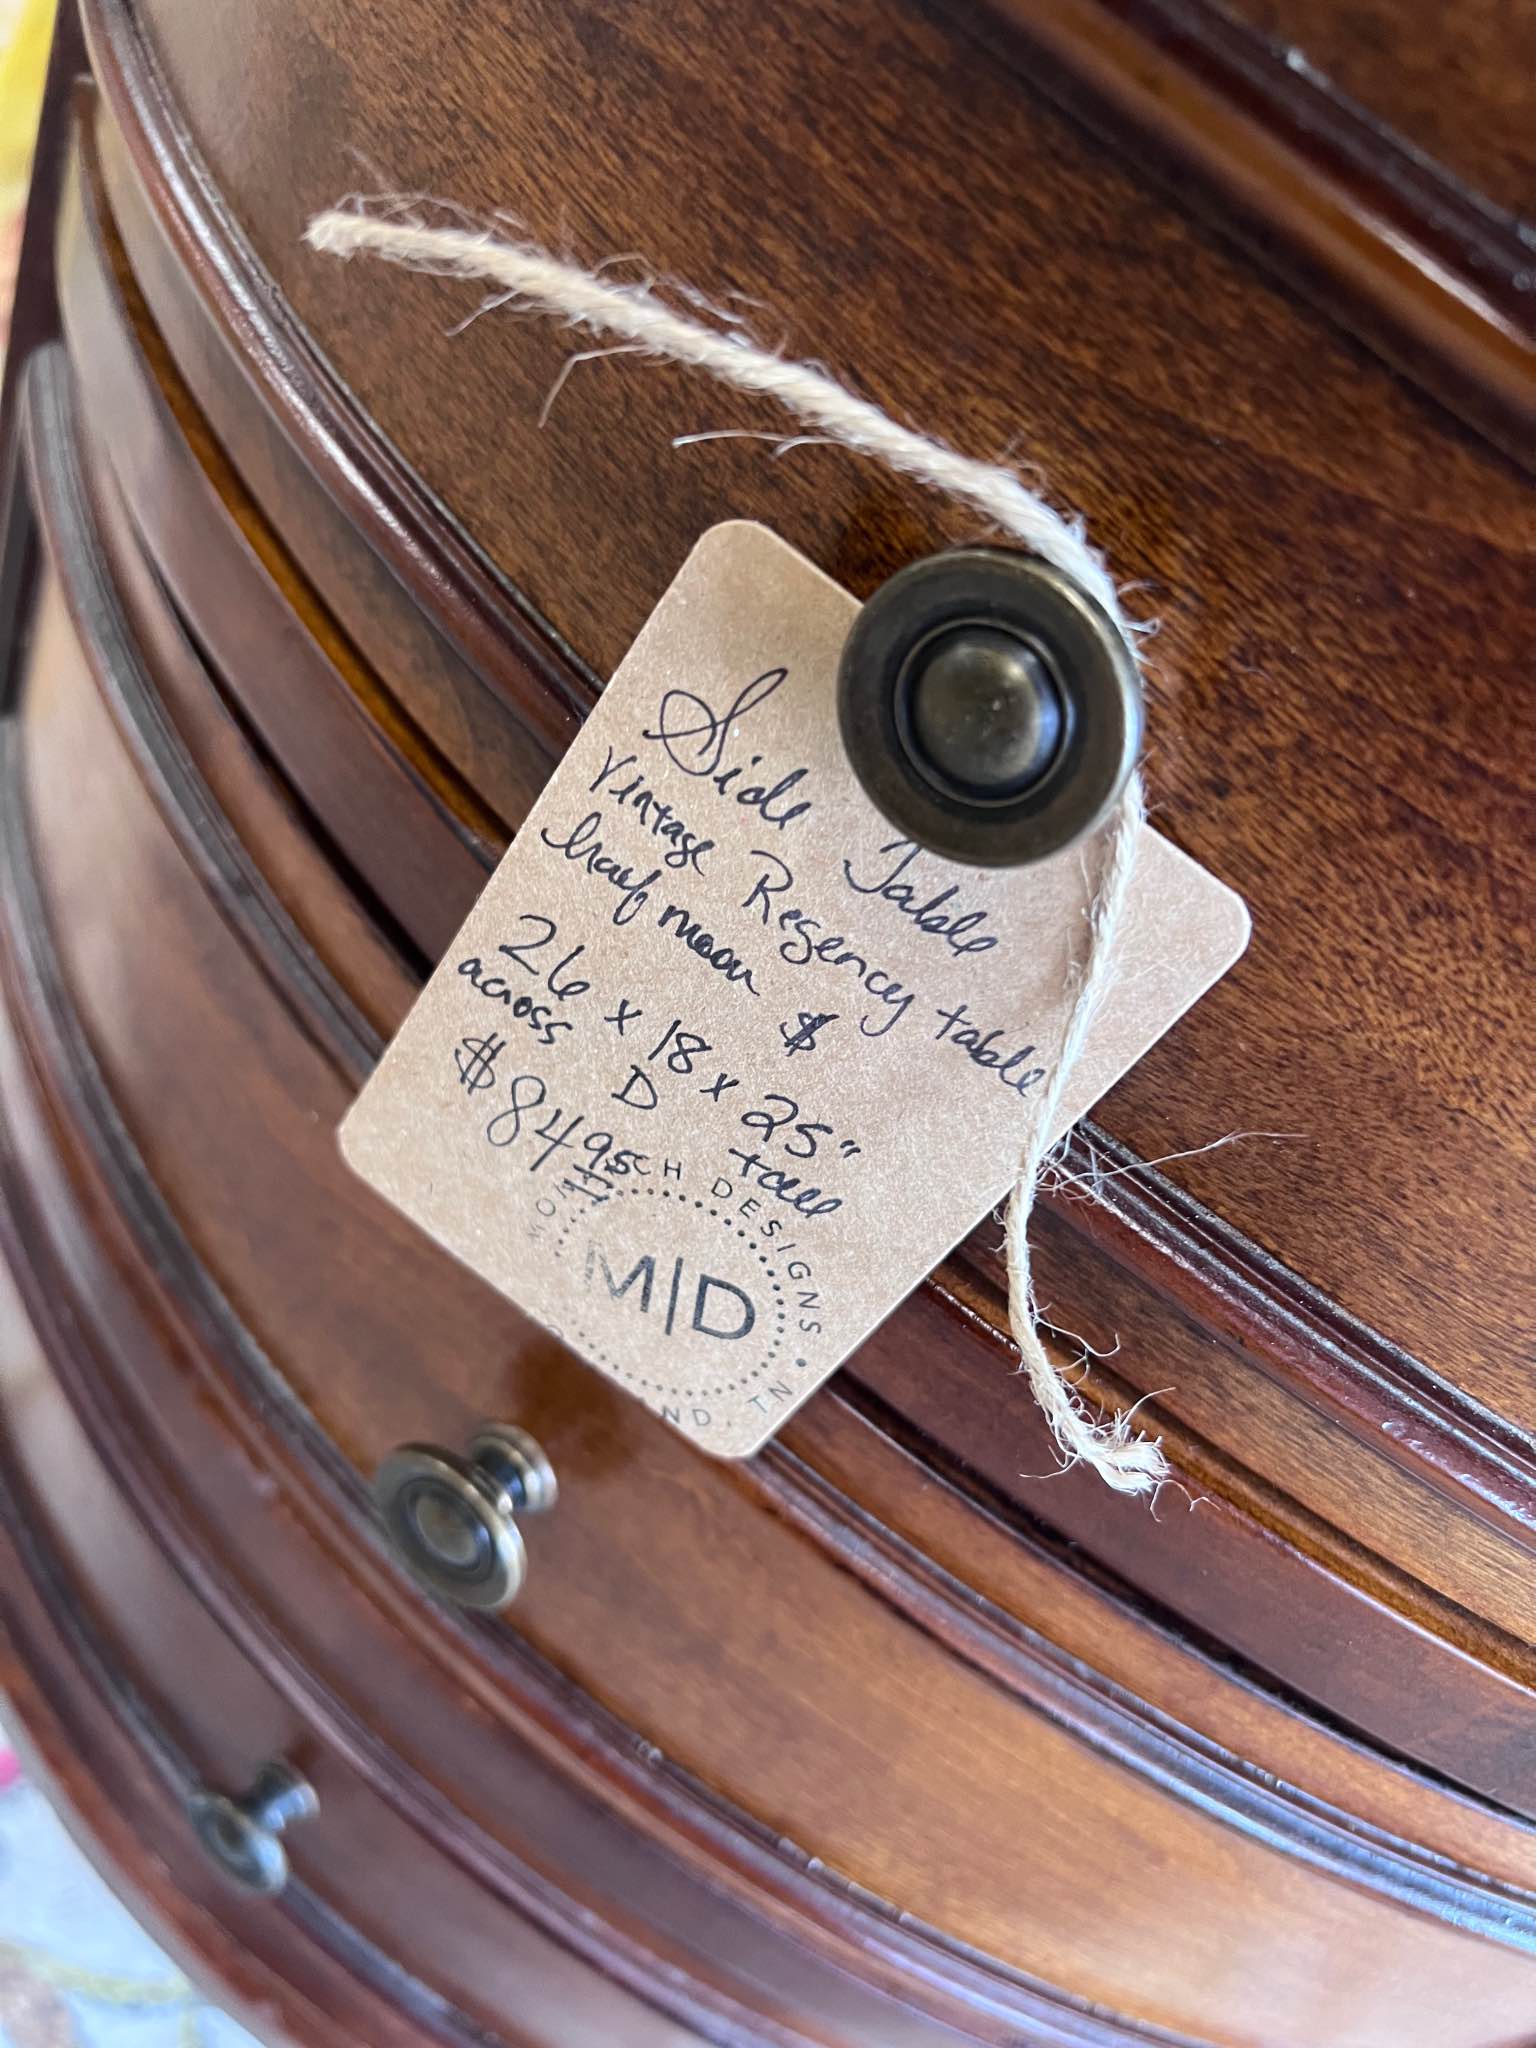 Side Table
Vintage Regency table
half moon $
26 x 18 x 25"
across D tall
$84 95
CH DESIGNS •
M|D
ND, TN